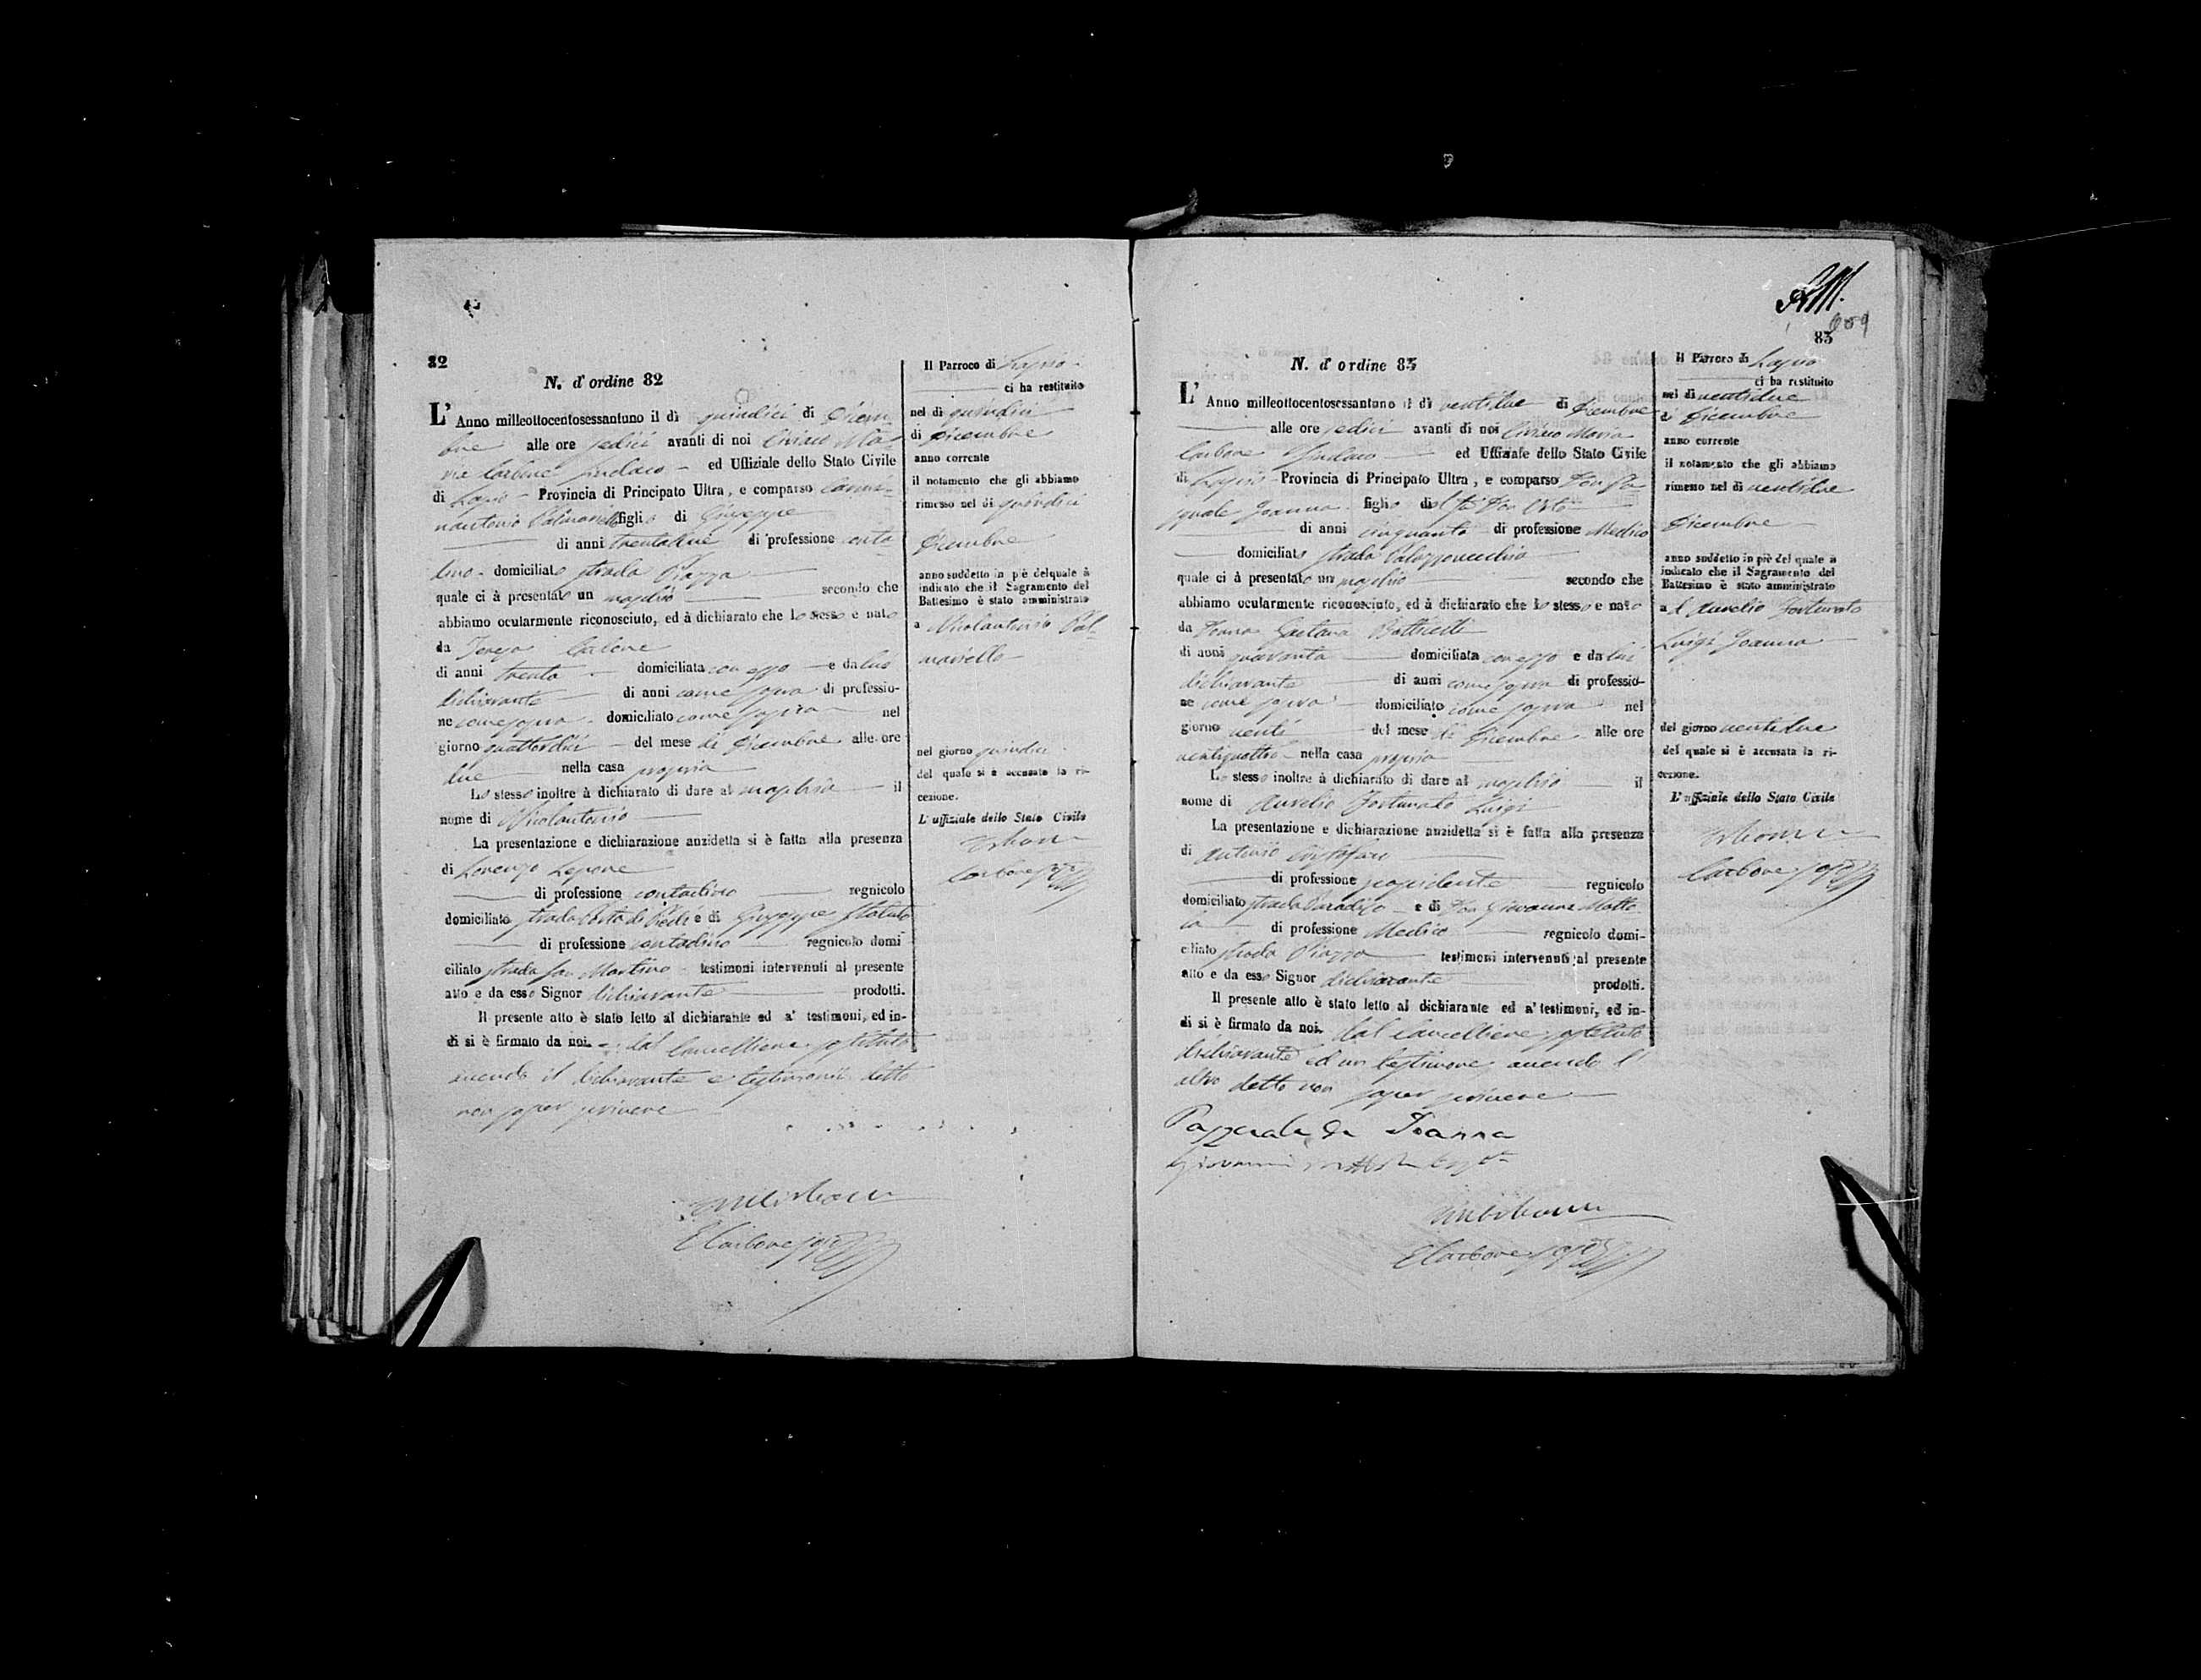 82
N. d' ordine 82
L' Anno milleottocentosessantuno il dì quindici di Dicem-
bre alle ore sedici avanti di noi Ciriaco Ma-
ria Carbone Sindaco ed Uffiziale dello Stato Civile
di Lapio Provincia di Principato Ultra, e comparso Carmi-
nantonio Palmariello figlio di Giuseppe
di anni trentadue di professione conta-
dino domiciliato strada Piazza
quale ci à presentato un maschio secondo che
abbiamo ocularmente riconosciuto, ed à dichiarato che lo stesso e nato
da Teresa Carbone
di anni trenta domiciliata con esso e da lui
dichiarante di anni come sopra di professio-
ne come sopra domiciliato come sopra nel
giorno quattordici del mese di Dicembre alle ore
due nella casa propria
Lo stesso inoltre à dichiarato di dare al maschio il
nome di Nicolantonio
La presentazione e dichiarazione anzidetta si è fatta alla presenza
di Lorenzo Lepore
di professione contadino regnicolo
domiciliato strada e di Giuseppe Statuto
di professione contadino regnicolo domi
ciliato strada San Martino testimoni intervenuti al presente
atto e da esso Signor dichiarante prodotti.
Il presente atto è stato letto al dichiarante ed a' testimoni, ed in-
di si è firmato da noi dal Cancelliere sostituto
avendo il dichiarante e testimonii detto
non saper scrivere
Carbone
Il Parroco di Lapio
ci ha restituito
nel dì quindici
di Dicembre
anno corrente
il notamento che gli abbiamo
rimesso nel dì quindici
Dicembre
anno suddetto in piè del quale à
indicato che il Sagramento del
Battesimo è stato amministrato
a Nicolantonio Pal-
mariello
nel giorno quindici
del quale si è accusata la ri-
cezione.
L' uffiziale dello Stato Civile
Carbone
83
N. d' ordine 83
L' Anno milleottocentosessantuno il dì ventidue di Dicembre
alle ore sedici avanti di noi Ciriaco Maria
Carbone Sindaco ed Uffiziale dello Stato Civile
di Lapio Provincia di Principato Ultra, e comparso Don Pa-
squale Joanna figlio di Don Vito
di anni cinquanta di professione Medico
domiciliato strada Palazzovecchio
quale ci à presentato un maschio secondo che
abbiamo ocularmente riconosciuto, ed à dichiarato che lo stesso e nato
da Donna Gaetana
di anni quaranta domiciliata con esso e da lui
dichiarante di anni come sopra di professio-
ne come sopra domiciliato come sopra nel
giorno venti del mese di Dicembre alle ore
ventiquattro nella casa propria
Lo stesso inoltre à dichiarato di dare al maschio il
nome di Aurelio Fortunato Luigi
La presentazione e dichiarazione anzidetta si è fatta alla presenza
di Antonio Cristofaro
di professione regnicolo
domiciliato strada Paradiso e di Don Giovanni Matto
la di professione Medico regnicolo domi-
ciliato strada Piazza testimoni intervenuti al presente
atto e da esso Signor dichiarante prodotti.
Il presente atto è stato letto al dichiarante ed a' testimoni, ed in-
di si è firmato da noi dal Cancelliere sostituto
dichiarante ed un testimone avendo l'
altro detto non saper scrivere
Pasquale de Joanna
Giovanni
Carbone
Il Parroco di Lapio
ci ha restituito
nel dì ventidue
di Dicembre
anno corrente
il notamento che gli abbiamo
rimesso nel dì ventidue
Dicembre
anno suddetto in piè del quale à
indicato che il Sagramento del
Battesimo è stato amministrato
a Aurelio Fortunato
Luigi Joanna
del giorno ventidue
del quale si è accusata la ri-
cezione.
L' uffiziale dello Stato Civile
Carbone